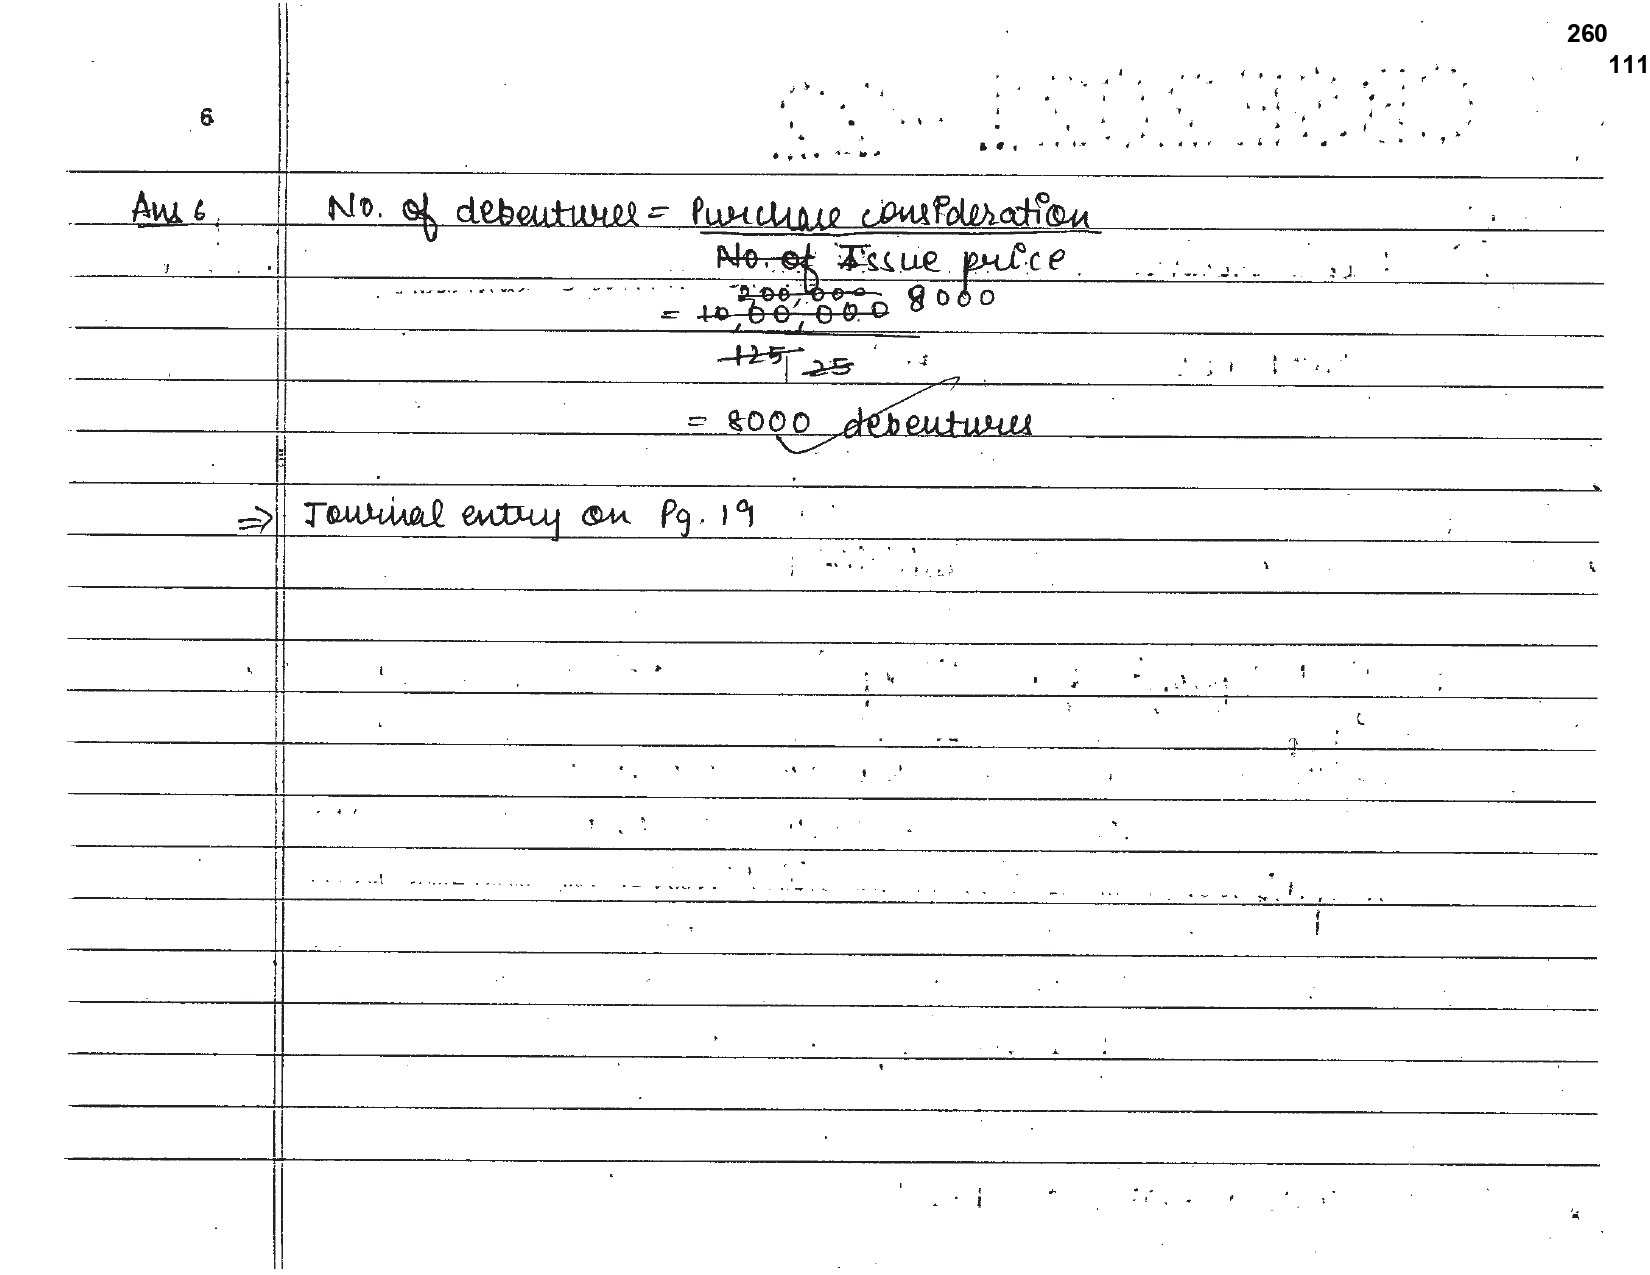 260
111
6
Ans 6. No. of debentures = Purchase consideration
No. of Issue price
200,000 8000
= 10,00,000
125 25
= 8000 debentures
⇒ Journal entry on Pg. 19